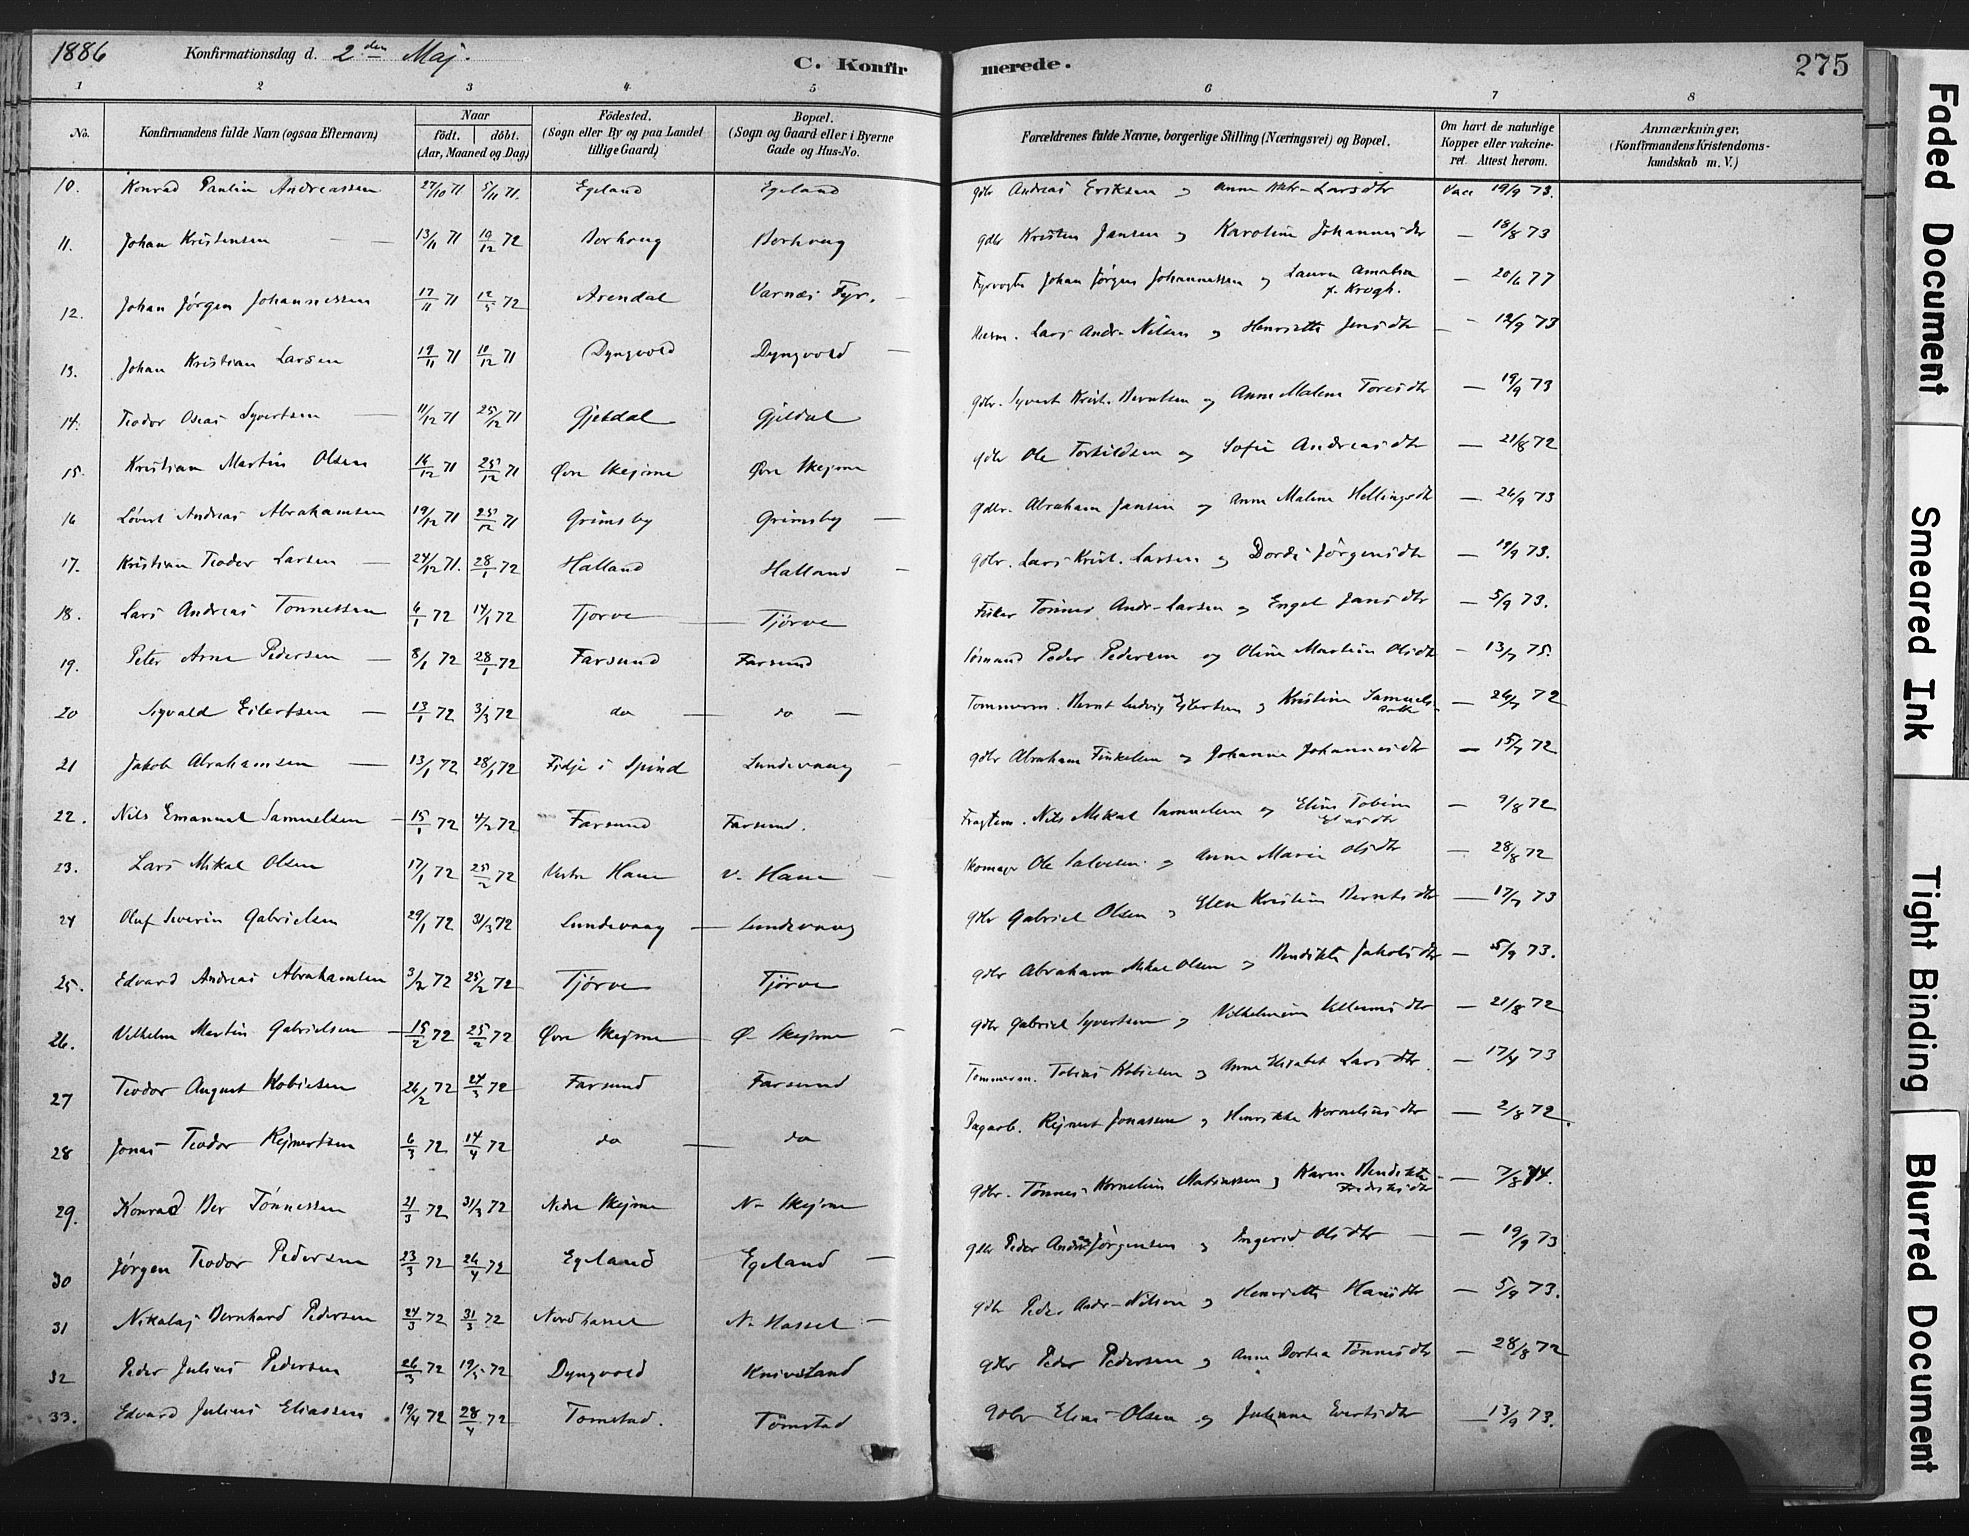 1886 Konfirmationsdag d. 2den Maj. C. Konfirmerede. 275
1 2 3 4 5 6 7 8
No. Konfirmandens fulde Navn (ogsaa Efternavn) Naar födt. döbt. (Aar, Maaned og Dag) Födested. (Sogn eller By og paa Landet tillige Gaard) Bopæl. (Sogn og Gaard eller i Byerne Gade og Hus-No. Forældrenes fulde Navne, borgerlige Stilling (Næringsvei) og Bopæl. Om havt de naturlige Kopper eller vakcineret. Attest herom. Anmærkninger, (Konfirmandens Kristendomskundskab m. V.)
10. Konrad Paulin Andreassen 27/10 71 5/11 71. Egeland Egeland gdbr Andreas Eriksen og Anne Larsdtr Vacc 19/9 73.
11. Johan Kristensen — 13/11 71 19/12 72 Borhaug Borhaug gdbr Kristen Jansen og Karoline Johannesdtr — 18/8 73
12. Johan Jørgen Johannessen 17/11 71 12/5 72 Arendal Varnæs Fyr. — Fyrvogter Johan Jørgen Johannessen og Laura Amalia f. Krogh. — 20/6 77
13. Johan Kristian Larsen 19/11 71 10/12 71 Dyngvold Dyngvold — Lars Andr. Nilsen og Henriette Jensdtr — 12/9 73
14. Teodor Oseas Syvertsen — 11/12 71 25/12 71 Gjeldal Gjeldal gdbr. Syvert Krist. Berntsen og Anne Malene Toresdtr — 19/9 73
15. Kristian Martin Olsen 16/12 71 25/12 71 Øvre Skejme Øvre Skejme gdbr Ole Torkildsen og Sofie Andreasdtr — 21/8 72
16 Løvert Andreas Abrahamsen 19/12 71 25/12 71 Grimsby Grimsby — gdbr. Abraham Jansen og Anne Malene Hellingsdtr — 26/9 73
17. Kristian Teodor Larsen — 24/12 71. 28/1 72 Halland Halland — gdbr. Lars Krist. Larsen og Dordi Jörgensdtr — 19/9 73.
18. Lars Andreas Tonnessen 6/1 72 14/1 72 Tjorve — Tjörve Fisker Tönnes Andr. Larsen og Engel Jansdtr — 5/9 73.
19. Peter Arne Pedersen — 8/1 72 28/1 72 Farsund Farsund Sømand Peder Pedersen og Oline Martine Olsdtr — 13/7 75.
20 Sigvald Eilertsen — 13/1 72 3/3 72 do — do — Tømmerm. Bernt Ludvig Eilertsen og Kristine Samuelsdatter — 26/7 72
21 Jakob Abrahamsen — 13/1 72 28/1 72 Fidje i Spind Lundevaag — gdbr Abraham Finkelsen og Johanne Johannesdtr — 15/7 72
22. Nils Emanuel Samuelsen — 15/1 72 4/2 72 Farsund Farsund. Fragtem. Nils Mikal Samuelsen og Eline Tobine Eliasdtr — 9/8 72
23. Lars Mikal Olsen 17/1 72 25/2 72 Vestre Haue V. Haue — Skomager Ole Salvesen og Anne Marie Olsdtr — 28/8 72
24 Oluf Severin Gabrielsen 29/1 72 31/3 72 Lundevaag — Lundevaag gdbr Gabriel Olsen og Elen Kristine Berntsdtr — 17/7 73
25. Edvard Andreas Abrahamsen 3/2 72 25/2 72 Tjørve Tjörve gdbr Abraham Mikal Olsen og Bendikte Jakobsdtr — 5/9 73.
26. Vilhelm Martin Gabrielsen — 15/2 72 25/2 72 Øvre Skejme — Ø. Skejme — gdbr Gabriel Syvertsen og Vilhelmine Villumsdtr — 21/8 72
27 Teodor August Tobiesen 26/2 72 24/3 72 Farsund Farsund Tømmerm. Tobias Tobiesen og Anne Elisabet Larsdtr. — 17/4 73
28 Jonas Teodor Rejnertsen 6/3 72 14/4 72 do — do Dagarb. Rejnert Jonassen og Henrikke Kornelius dtr — 2/8 72.
29. Konrad Ber Tönnessen 21/3 72 31/3 72 Nedre Skejme N. Skejme gdbr. Tønnes Kornelius Matiassen og Karen Bendikte Fredriksdtr — 7/8 74.
30 Jørgen Teodor Pedersen 23/3 72 26/4 72 Egeland Egeland — gdbr Peder Andreas Jørgensen og Ingerid Olsdtr — — 19/9 73
31 Nikolaj Bernhard Pedersen 24/3 72 31/3 72 Nordhassel N. Hassel — gdbr Peder Andr. Nilsen og Henriette Hansdtr — 5/9 73.
32 Peder Julius Pedersen 26/3 72 19/5 72 Dyngvold Knivsland gdbr Peder Pedersen og Anne Dortea Tönnesdtr — 28/8 72
33. Edvard Julius Eliassen 19/4 72 28/4 72 Tomstad. Tömstad gdbr Elias Olsen og Juliane Evertsdtr — 13/9 73.
Faded Document
Smeared Ink
Tight Binding
Blurred Document